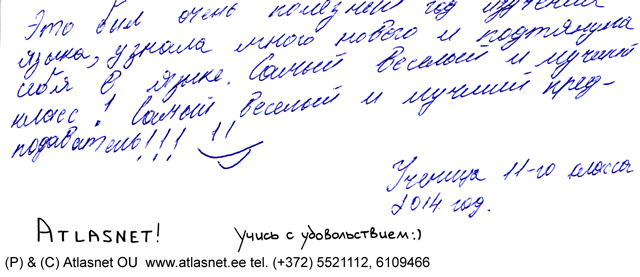 Это был очень полезный год изучения
языка, узнала много нового и подтянула
себя в языке. Самый веселый и лучший
класс! Самый веселый и лучший пред-
подаватель!!! !!
Ученица 11-го класса
2014 год.
ATLASNET! Учись с удовольствием:)
(P) & (C) Atlasnet OU www.atlasnet.ee tel. (+372) 5521112, 6109466